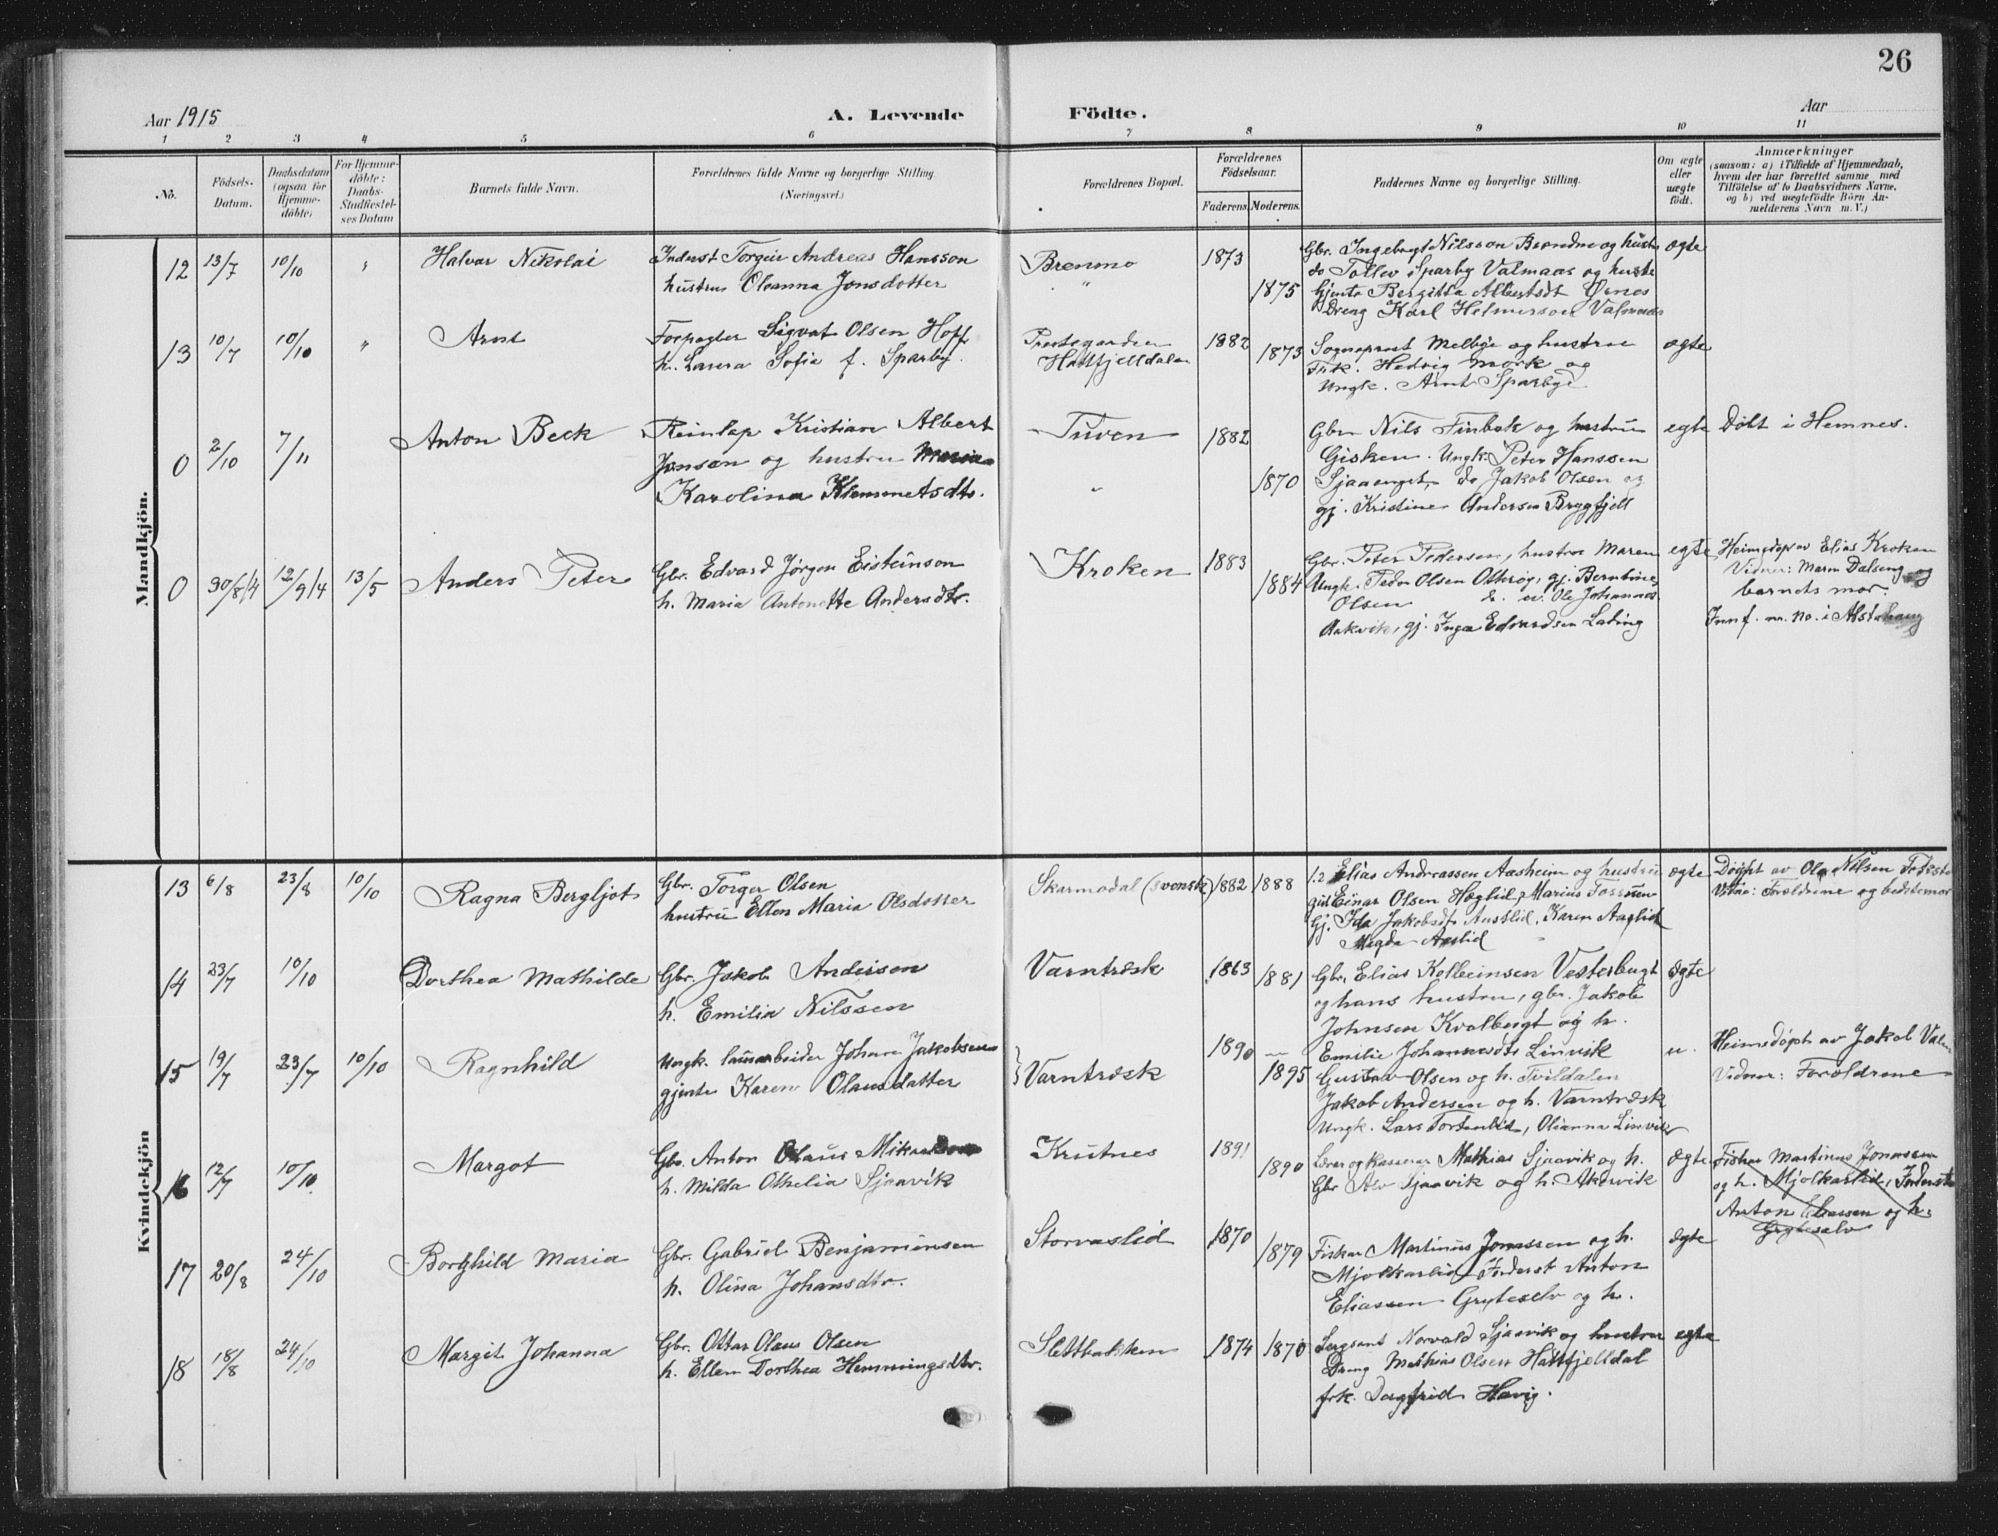 26
Aar 1915
A. Levende
Födte.
Aar
1 2 3 4 5 6 7 8 9 10 11
No.
Födsels-Datum.
Daabsdatum (ogsaa for Hjemme-döbte)
For Hjemme-döbte: Daabs-Stadfæstel-ses Datum
Barnets fulde Navn.
Forældrenes fulde Navne og borgerlige Stilling.
(Næringsvei.)
Forældrenes Bopæl.
Forældrenes Födselsaar.
Faderens. Moderens.
Faddernes Navne og borgerlige Stilling.
Om ægte eller uægte födt.
Anmærkninger
(saasom: a) i Tilfælde af Hjemmedaab,
hvem der har forrettet samme, med
Tilföielse af to Daabsvidners Navne,
og b) ved uægtefödte Börn An-
melderens Navn m. V.)
Mandkjön.
12 13/7 10/10 " Halvar Nikolai
Inderst Torgeir Andreas Hansson
hustru Oleanna Jonsdotter
Brenmo
"
1873
1875
Gbr. Ingebrigt Nilsson Brændmo og hustr
do Tollev Sparby Valmaas og hustr
Gjente Bergitta Albertsdt
Dreng Karl Helmerson Valmaas
ægte
13 10/7 10/10 " Arnt
Forpagter Sigvat Olsen Hoff
h. Laura Sofia f. Sparby.
Prestegarden
Hattfjelldalen
1882
1873
Sogneprest Melbye og hustru
Frk. Hedvig Mørk og
Ungk. Arnt Sparbye.
ægte
0 2/10 7/11 Anton Beck
Reinlap Kristian Albert
Jonsen og hustru Maria
Karolina Klemmetsdtr.
Tuven
"
1882
1870
Gbr Nils Finbak og hustru
Gisken. Ungk. Peter Hanssen
Sjaaenget, do Jakob Olsen og
gj. Kristine Andersen Brygfjell
egte
Døbt i Hemnes.
0 30/8 14 12/9 14 13/5 Anders Peter
Gbr. Edvard Jørgen Eisteinson
h. Maria Antonette Andersdtr.
Kroken
1883
1884
Gbr. Peter Pedersen, hustru Maren
Ungk. Peder Olsen gj. Berntine
Olsen Ole Johannes
Aakvik, gj. Inga Edvardsen Lading
egte
Heimedøpt av Elias Kroken
Vidner: Maren Dalseng og
barnets mor.
Innf. nr. no. i Alstahaug
Kvindekjön
13 6/8 23/8 10/10 Ragna Bergljot
Gbr. Torger Olsen
hustru Ellen Maria Olsdotter
Skarmodal (svensk)
1882 1888
Elias Andreassen Aasheim og hustru
Einar Olsen Hæglid, Marius
Gj. Ida Jakobsdt Austlid, Karen Aaslid
Magda Aaslid
ægte
Døypt av Ole Nilsen
Vitne: Foreldrene og bedstemor
14 23/7 10/10 Dorthea Mathilde
Gbr. Jakob Anderson
h. Emilia Nilssen
Varntræsk
1863
1881
Gbr. Elias Kolbeinsen Vesterbugt
og hans hustru, gbr. Jakob
Johnsen Kvalbugt og h.
ægte
15 19/7 23/7 10/10 Ragnhild
Ungk. løsarbeider Johan Jakobsen
gjente Karen Olausdatter
Varntræsk
1890
1895
Emilie Johannesdtr Linvik
Gustav Olsen og h. Tvildalen
Jakob Andersen og h. Varntræsk
Ungk. Lars Tortenlid, Olianna Linvik
u.
Heimedøpt av Jakob
Vidner: Foreldrene
16 12/7 10/10 Margot
Gbr. Anton Olaus
h. Milda Othelia Sjaavik
Krutnes
1891
1890
Lærer og kasserer Mathias Sjaavik og h.
Gbr Alv Sjaavik og h. Akervik
ægte
Fisker Martinus Jonassen
og h. Mjølkarlid, Inderst
Anton Eliassen og h.
Grubeselv
17 20/8 24/10 Borghild Maria
Gbr. Gabriel Benjaminsen
h. Olina Johansdtr.
Storvaslid
1870
1879
Fisker Martinus Jonassen og h.
Mjølkarlid, Inderst Anton
Eliassen Grubeselv og h.
ægte
18 18/8 24/10 Margit Johanna
Gbr. Ottar Olaus Olsen
h. Ellen Dorthea Hemmingsdtr.
Slettbakken
1874 1870
Sergeant Norvald Sjaavik og hustru
Dreng Mathias Olsen Hattfjelldal
frk. Dagfrid Havig.
egte